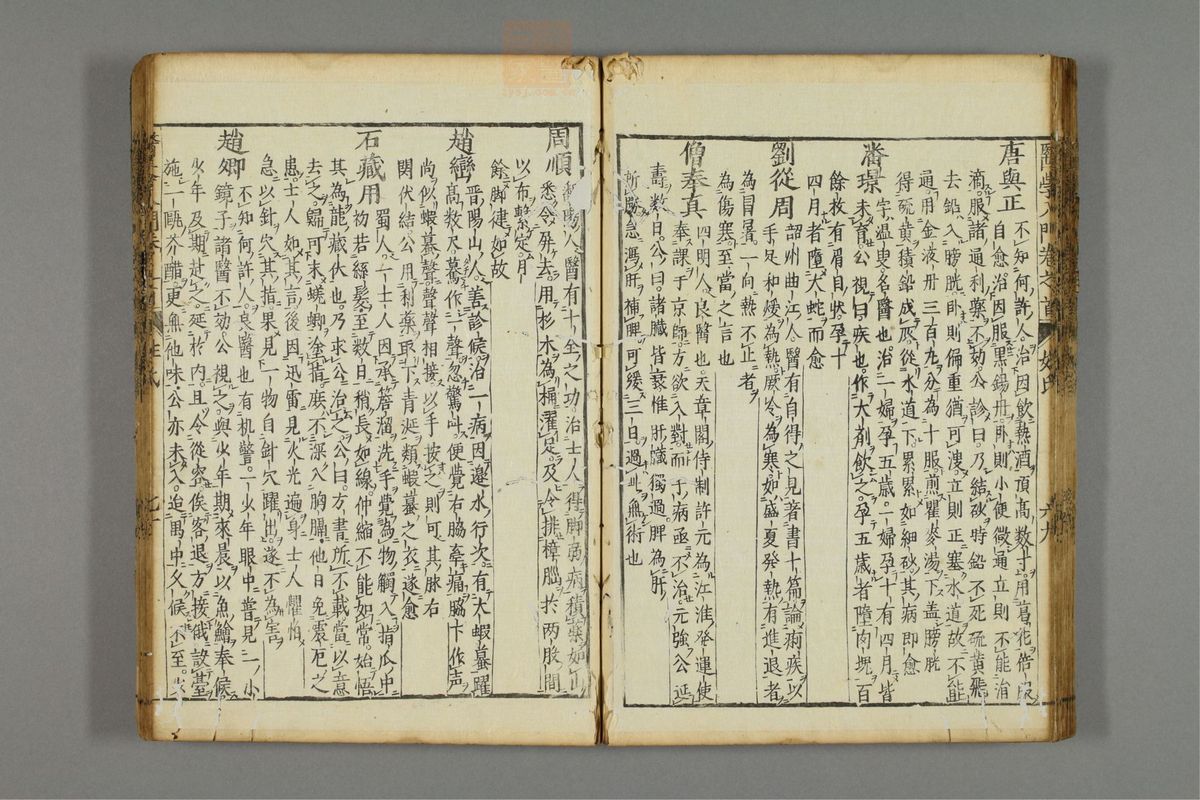 醫學入門卷之首 姓氏 六九
唐與正 不知何許人治因飲熱酒頂高数寸用葛花倍服
自愈治因服黒錫丹卧則小便微通立則不能治
滴服諸通利藥不効公診曰乃結砂時鉛不死硫黄飛
去鉛入膀胱卧則偏重猶可溲立則正塞水道故不能
通用金液丹三百九分為十服煎瞿麥湯下盖膀胱
得硫黄積鉛成灰從水道下累累如細砂其病即愈
潘璟 字温叟名醫也治一婦孕五歳一婦孕十有四月皆
未育公視曰疾也作大劑飲之孕五歳者墮肉塊百
餘枚有眉目狀孕十
四月者墮大蛇而愈
劉從周 韶州曲江人醫有自得之見著書十篇論痢疾以
手足和煖為熱厥冷為寒如盛夏發熱有進退者
為冒暑一向熱不止者
為傷寒至當之言也
僧奉真 四明人良醫也天章閣侍制許元為江淮發運使
奏課于京師方欲入對而子病亟不治元強公延
壽数日公曰諸臓皆衰惟肝臓獨過脾為肝
所勝急瀉肝補脾可緩三日過此無術也
周順 鄱陽人醫有十全之功治士人得脚弱病積藥如山
悉令屏去用杉木為桶濯足及令排樟腦於两股間
以布繫定月
餘脚健如故
趙巒 晋陽山人善診候治一病因邊水行次有大蝦蟇躍
髙数尺驀作一聲忽驚叫便覺右脇牽痛脇下作声
尚似蝦蟇聲聲相接以手按之則可其脉右
関伏結公用利藥取下青涎類蝦蟇之衣遂愈
石藏用 蜀人一士人因承簷溜洗手覺為物觸入指爪中
初若絲髮至数日稍長如線伸縮不能如常始悟
其為龍藏伏也乃求公治之公曰方書所不載當以意
去之歸可末蜣蜋塗指庶不深入胸膈他日免震厄之
患士人如其言後因迅雷見火光遍身士人懼怕
急以針穴其指果見一物自針穴躍出遂不為害
趙卿 不知何許人良醫也有机警一少年眼中嘗見一小
鏡子諸醫不効公視之與少年期來晨以魚鱠奉候
少年及期赴之延於内且令從容俟客退方接俄設臺
施一甌芥醋更無他味公亦未入迨禺中久候不至少